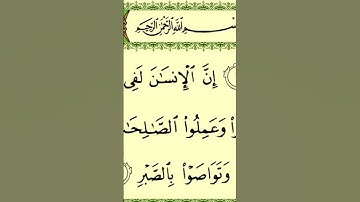 ـسْمِ ٱللَّهِ ٱلرَّحْمَٰنِ ٱلرَّحِيمِ
إِنَّ ٱلْإِنسَٰنَ لَفِى
وَعَمِلُوا۟ ٱلصَّٰلِحَٰـ
وَتَوَاصَوْا۟ بِٱلصَّبْرِ